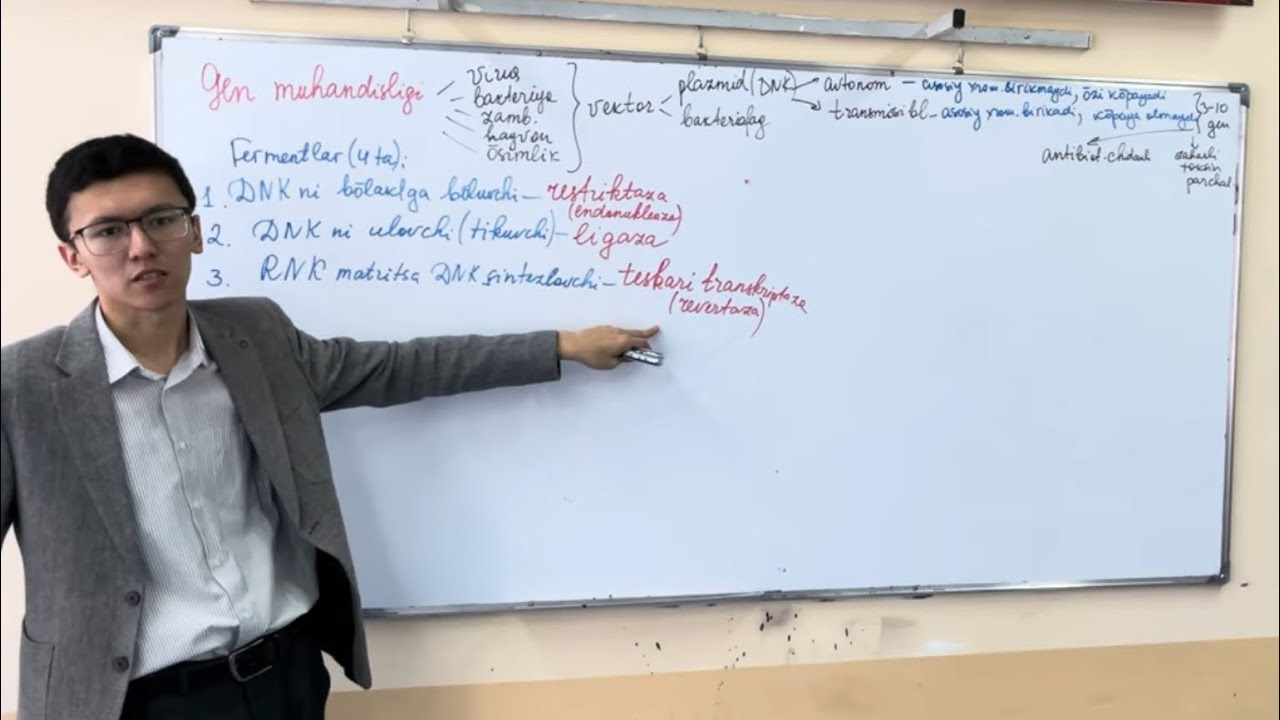 Gen muhandisligi
virus
bakteriya
zamb.
hayvon
õsimlik
vektor
plazmid (DNK)
bakteriofag
avtonom – asosiy xrom. birikmaydi, õzi kõpayadi
transmissibl – asosiy xrom. birikadi, kõpaya olmaydi
3-10
gen
antibiot. chdamli
zaharli
toksin
parchal
Fermentlar (4 ta):
1. DNK ni bõlaklga bõluvchi – restriktaza
(endonukleaza)
2. DNK ni ulovchi (tikuvchi) – ligaza
3. RNK matritsa DNK sintezlovchi – teskari transkriptaza
(revertaza)